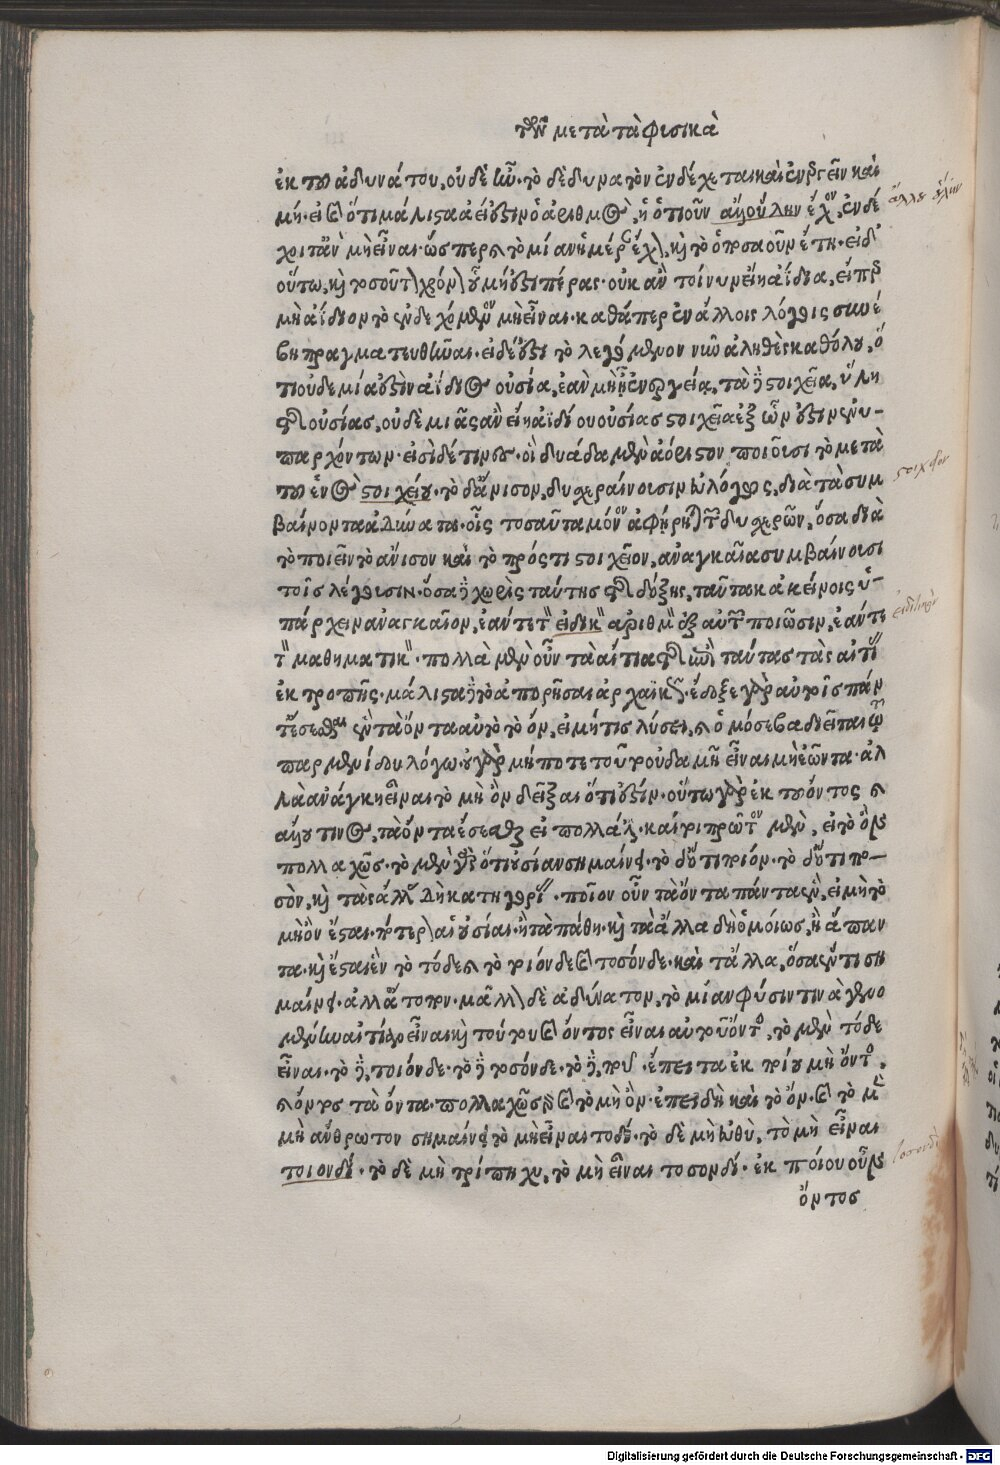 τῶν μετὰ τὰ φυσικὰ
ἐκ τοῦ ἀδυνάτου, οὐδὲ ὧν. τὸ δὲ δυνατὸν ἐνδέχεται καὶ ἐνεργεῖν καὶ
μή. εἰ καὶ ὅτι μάλιστα ἀεί ἐστιν ὁ ἀριθμὸς, ἢ ὁτιοῦν ὕλην ἔχον, ἐνδέ
χοιτ' ἂν μὴ εἶναι. ὥσπερ καὶ τὸ μίαν ἡμέραν ἔχον, καὶ τὸ ὁποσαοῦν ἔτη. εἰ δ'
οὕτω, καὶ τοσοῦτον χρόνον οὗ μή ἐστι πέρας. οὐκ ἂν τοίνυν εἴη ἀΐδια, εἴπερ
μὴ ἀΐδιον τὸ ἐνδεχόμενον μὴ εἶναι. καθάπερ ἐν ἄλλοις λόγοις συνέ
βη πραγματευθῆναι. εἰ δέ ἐστι τὸ λεγόμενον νῦν ἀληθὲς καθόλου, ὅ
τι οὐδεμία ἐστὶν ἀΐδιος οὐσία, ἐὰν μὴ ᾖ ἐνεργείᾳ, τὰ δὲ στοιχεῖα, ὕλη
τῆς οὐσίας, οὐδεμιᾶς ἂν εἴη ἀϊδίου οὐσίας στοιχεῖα ἐξ ὧν ἐστιν ἐνυ-
παρχόντων. εἰσὶ δέ τινες οἳ δυάδα μὲν ἀόριστον ποιοῦσι τὸ μετὰ
τοῦ ἑνὸς στοιχείου. τὸ δ' ἄνισον, δυσχεραίνουσιν εὐλόγως, διὰ τὰ συμ
βαίνοντα ἀδύνατα. οἷς τοσαῦτα μόνον ἀφῄρηται τῶν δυσχερῶν, ὅσα διὰ
τὸ ποιεῖν τὸ ἄνισον καὶ τὸ πρός τι στοιχεῖον, ἀναγκαῖα συμβαίνουσι
τοῖς λέγουσιν. ὅσα δὲ χωρὶς ταύτης τῆς δόξης, ταῦτα κἀκείνοις ὑ-
πάρχειν ἀναγκαῖον, ἐάν τε τὸν εἰδητικὸν ἀριθμὸν ἐξ αὐτῶν ποιῶσιν, ἐάν τε
τὸν μαθηματικόν. πολλὰ μὲν οὖν τὰ αἴτια τῆς ἐπὶ ταύτας τὰς αἰτίας
ἐκτροπῆς. μάλιστα δὲ τὸ ἀπορῆσαι ἀρχαϊκῶς. ἔδοξε γὰρ αὐτοῖς πάν
τ' ἔσεσθαι ἓν τὰ ὄντα αὐτὸ τὸ ὄν, εἰ μή τις λύσει, καὶ ὁμόσε βαδιεῖται τῷ
παρμενίδου λόγω. οὐ γὰρ μήποτε τοῦτο οὐδαμῇ εἶναι μὴ ἐῶντα. ἀλ
λὰ ἀνάγκη εἶναι τὸ μὴ ὂν δεῖξαι ὅτι ἐστίν. οὕτω γὰρ ἐκ τοῦ ὄντος καὶ
ἄλλου τινὸς, τὰ ὄντα ἔσεσθαι εἰ πολλά ἐστι. καίτοι πρῶτον μὲν, εἰ τὸ ὂν
πολλαχῶς. τὸ μὲν γὰρ ὅτι οὐσίαν σημαίνει. τὸ δ' ὅτι ποιόν. τὸ δ' ὅτι πο-
σὸν, καὶ τὰς ἄλλας δὴ κατηγορίας. ποῖον οὖν τὰ ὄντα πάντα ἓν, εἰ μὴ τὸ
μὴ ὂν ἔσται. πότερον αἱ οὐσίαι. ἢ τὰ πάθη. καὶ τὰ ἄλλα δὴ ὁμοίως, ἢ ἅπαν
τα. καὶ ἔσται ἓν τὸ τόδε καὶ τὸ τοιόνδε καὶ τοσόνδε. καὶ τἄλλα, ὅσα ἕν τι ση
μαίνει. ἀλλ' ἄτοπον. μᾶλλον δὲ ἀδύνατον, τὸ μίαν φύσιν τινὰ γενο
μένην αἰτίαν εἶναι καὶ τούτου καὶ ὄντος εἶναι αὐτοῦ ὄντος, τὸ μὲν τόδε
εἶναι. τὸ δὲ, τοιόνδε. τὸ δὲ τοσόνδε. τὸ δὲ, ποῦ. ἔπειτα ἐκ ποίου μὴ ὄντος,
καὶ ὄντος τὰ ὄντα. πολλαχῶς γὰρ καὶ τὸ μὴ ὄν. ἐπειδὴ καὶ τὸ ὄν. καὶ τὸ μὲν
μὴ ἄνθρωπον σημαίνει τὸ μὴ εἶναι τοδί. τὸ δὲ μὴ εὐθὺ, τὸ μὴ εἶναι
τοιονδί. τὸ δὲ μὴ τρίπηχυ, τὸ μὴ εἶναι τοσονδί. ἐκ ποίου οὖν
ὄντος